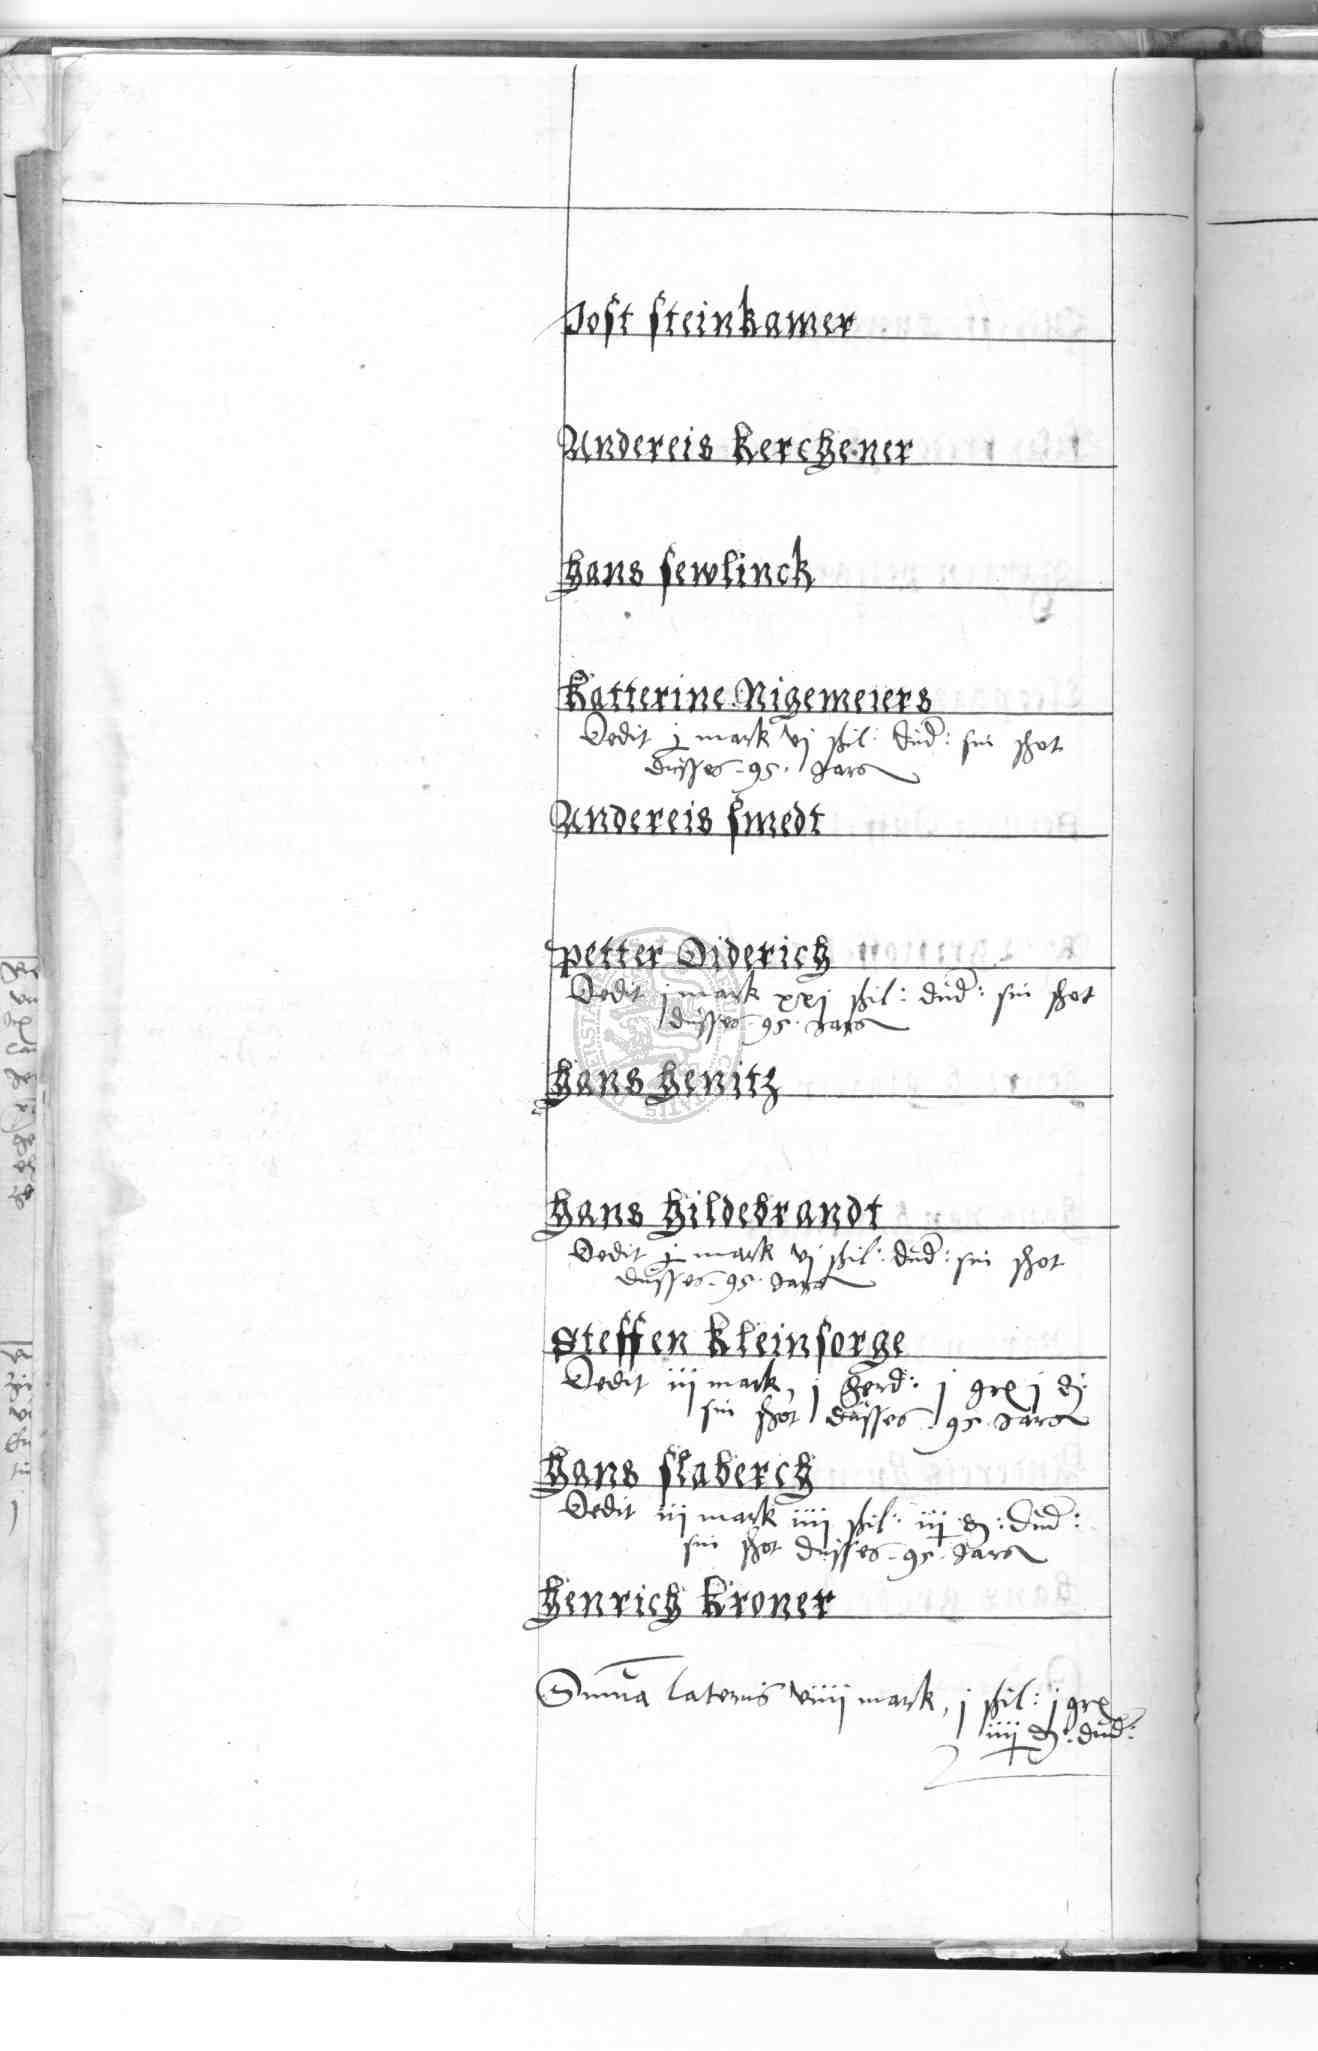 Jost steinkamer
Andereis kerchener
hans sewlinck
katterine Nigemeiers
Dedit j mark vj shil: dud: sin shot
dusses · 95 · Jars
Andereis smedt
petter Diderich
Dedit j mark xxj shil: dud: sin shot
dusses · 95 · Jars
hans henitz
hans hildebrandt
Dedit j mark vj shil: dud: sin shot
dusses · 95 · Jars
Steffen kleinsorge
Dedit iij mark, j ferd: j gr j
sin shot dusses 95 · Jars
hans slaberch
Dedit iij mark iiij shil: iij d: dud:
sin shot dusses · 95 · Jars
henrich kroner
Suma lateris viiij mark, j shil: j gr
iiij d: dud: